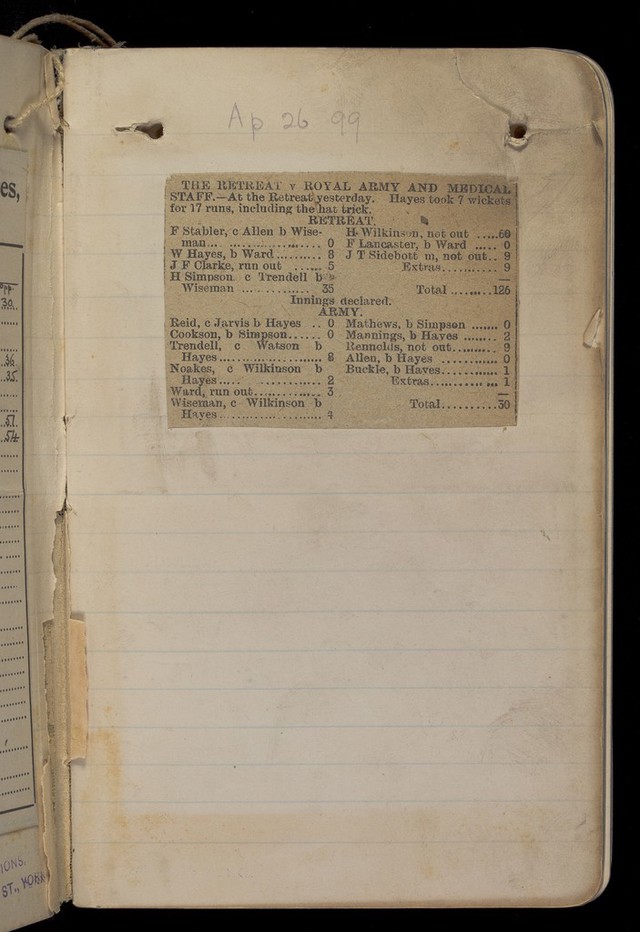 es,
30.
36
35.
51.
54.
IONS.
ST., YORK
Ap 26 99
THE RETREAT v ROYAL ARMY AND MEDICAL
STAFF.—At the Retreat yesterday. Hayes took 7 wickets
for 17 runs, including the hat trick.
RETREAT.
F Stabler, c Allen b Wise-
man........................ 0
W Hayes, b Ward .......... 8
J F Clarke, run out ....... 5
H Simpson c Trendell b
Wiseman ............... 35
H Wilkinson, not out .....60
F Lancaster, b Ward ..... 0
J T Sidebott m, not out.. 9
Extras........... 9
Total .........126
Innings declared.
ARMY.
Reid, c Jarvis b Hayes .. 0
Cookson, b Simpson...... 0
Trendell, c Watson b
Hayes...................... 8
Noakes, c Wilkinson b
Hayes..... ............... 2
Ward, run out.............. 3
Wiseman, c Wilkinson b
Hayes...................... 4
Mathews, b Simpson ....... 0
Mannings, b Hayes ........ 2
Rennolds, not out.......... 9
Allen, b Hayes ............ 0
Buckle, b Hayes............ 1
Extras.............. 1
Total..........30